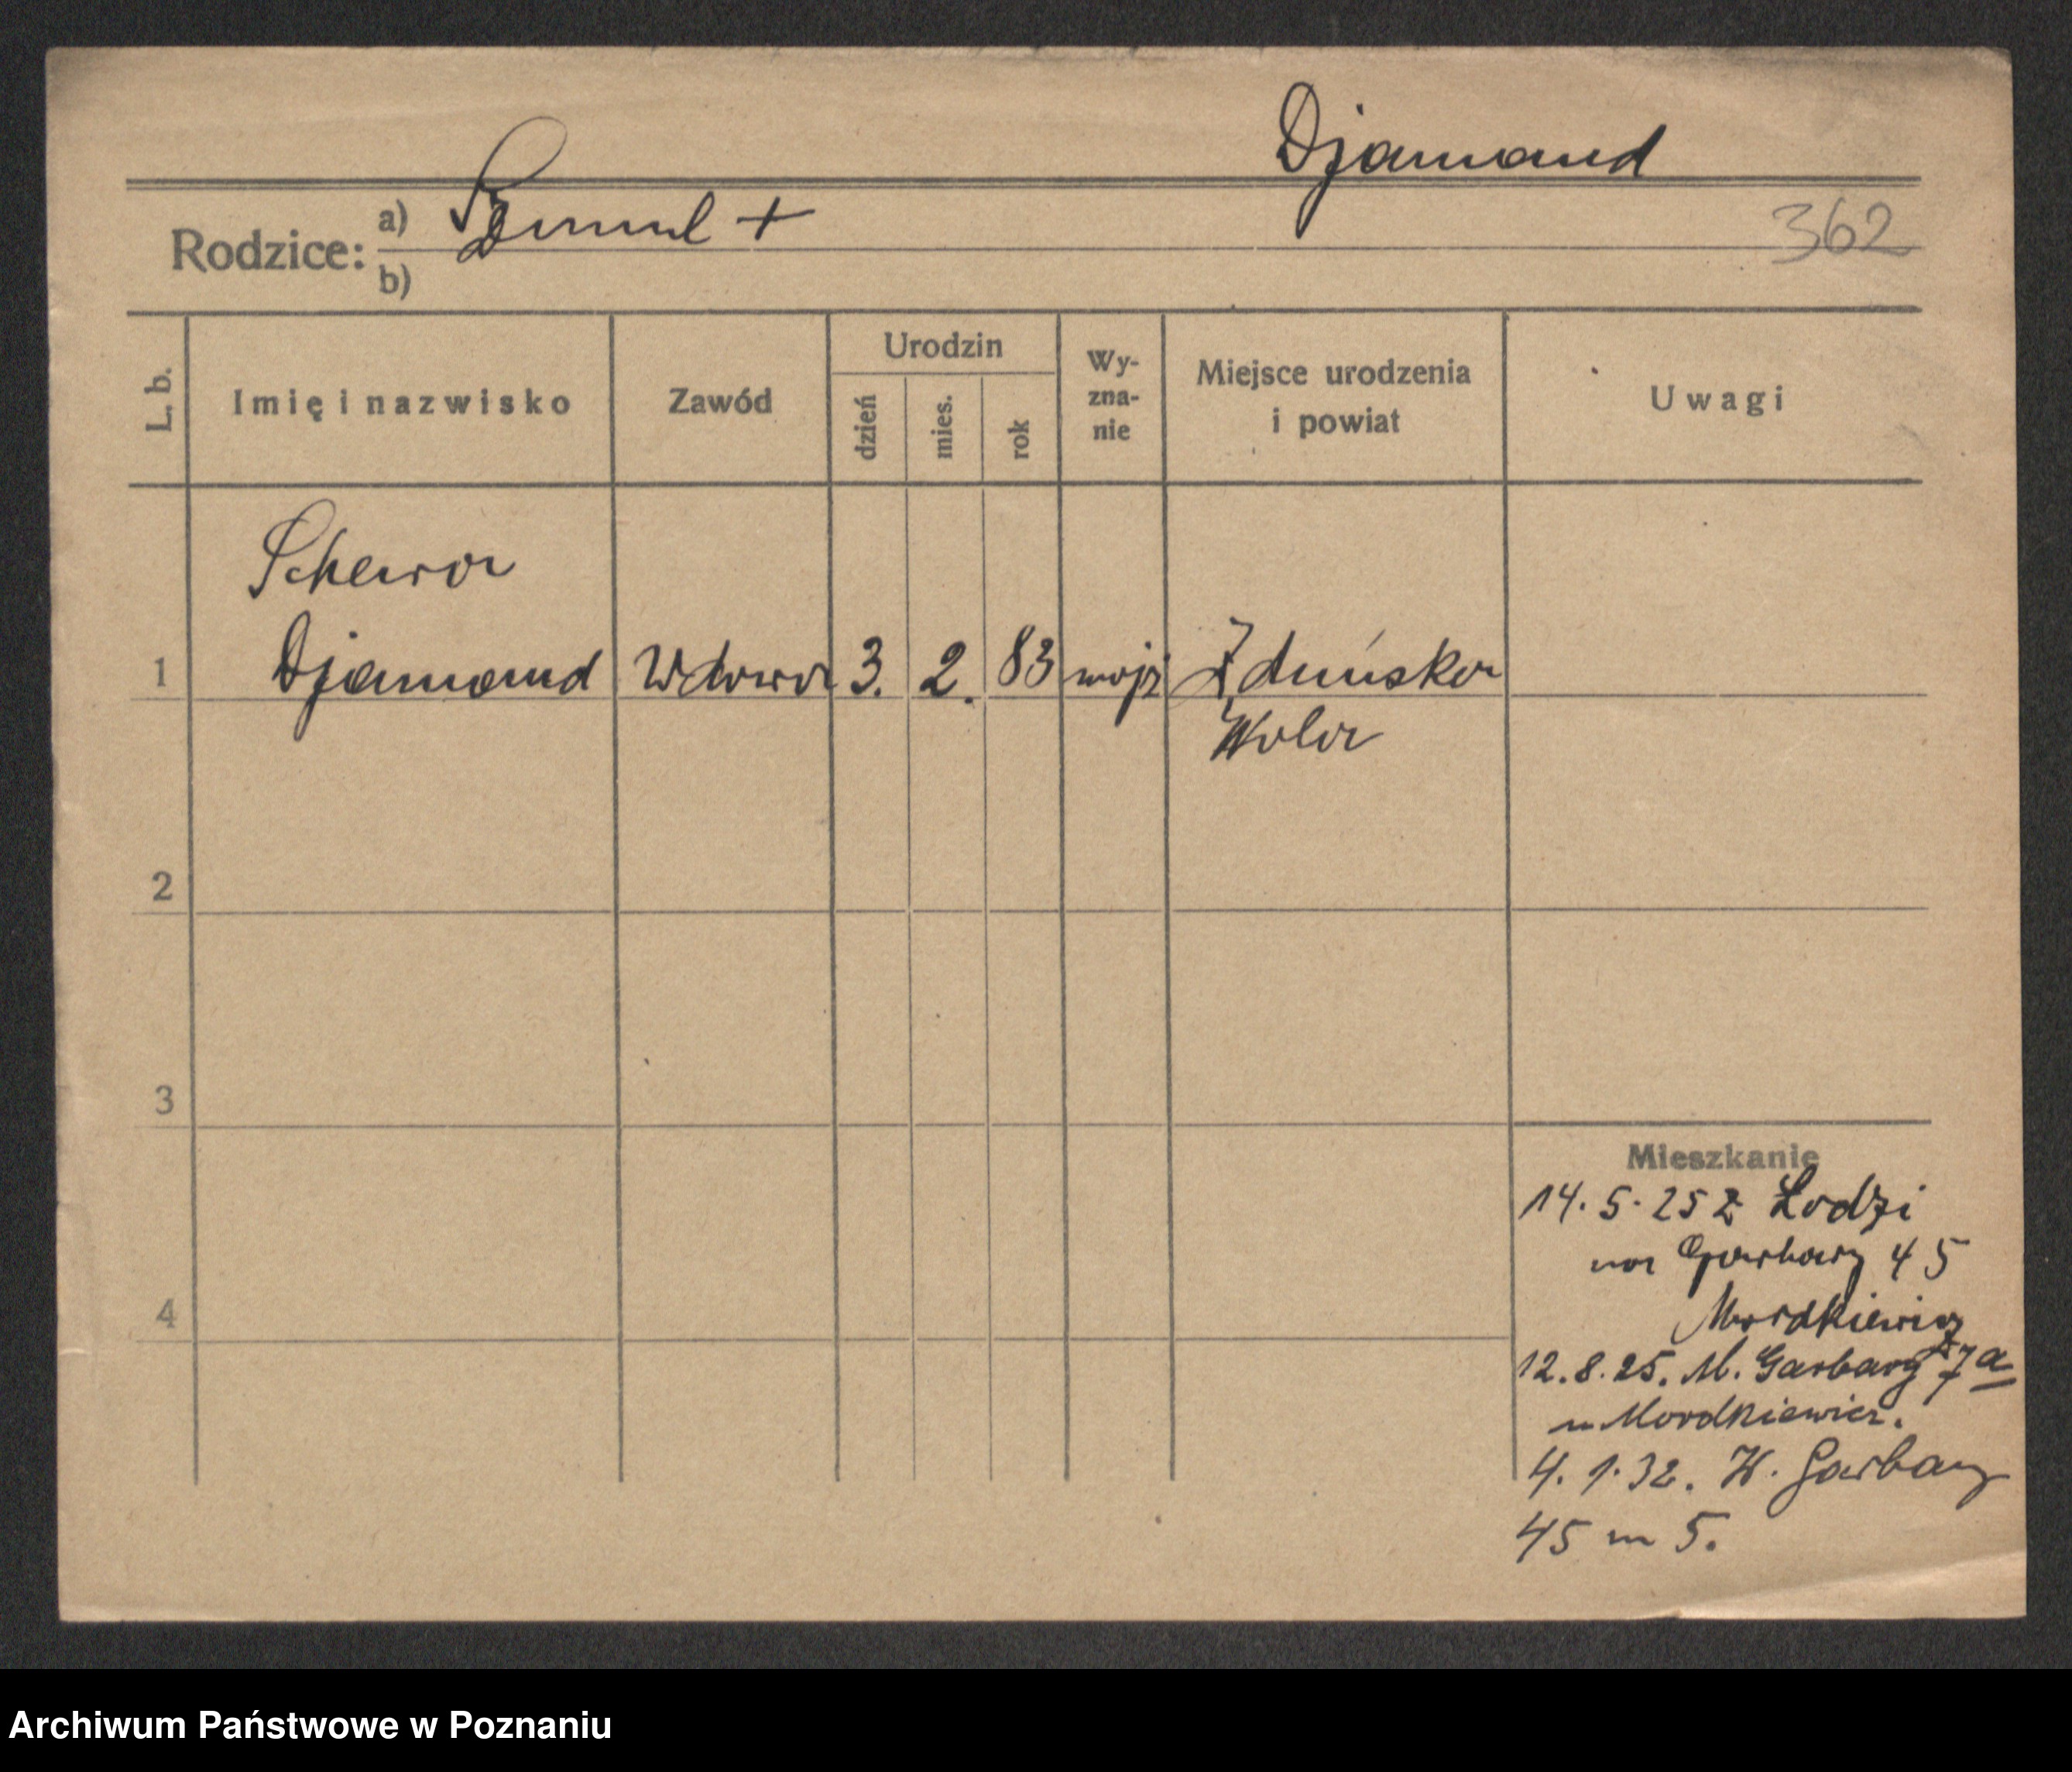 Djamand
Rodzice: a) Szmul +
b)
362
L. b.
Imię i nazwisko
Zawód
Urodzin
dzień
mies.
rok
Wy-
zna-
nie
Miejsce urodzenia
i powiat
Uwagi
Schewa
1 Djamand Wdowa 3. 2. 83 mojż Zduńska
Wola
2
3
4
Mieszkanie
14. 5. 25 z Łodzi
na Garbary 45
Mordkiewicz
12. 8. 25. M. Garbary 7a
u Mordkiewicz.
4. 1. 32. W. Garbary
45 m 5.
Archiwum Państwowe w Poznaniu